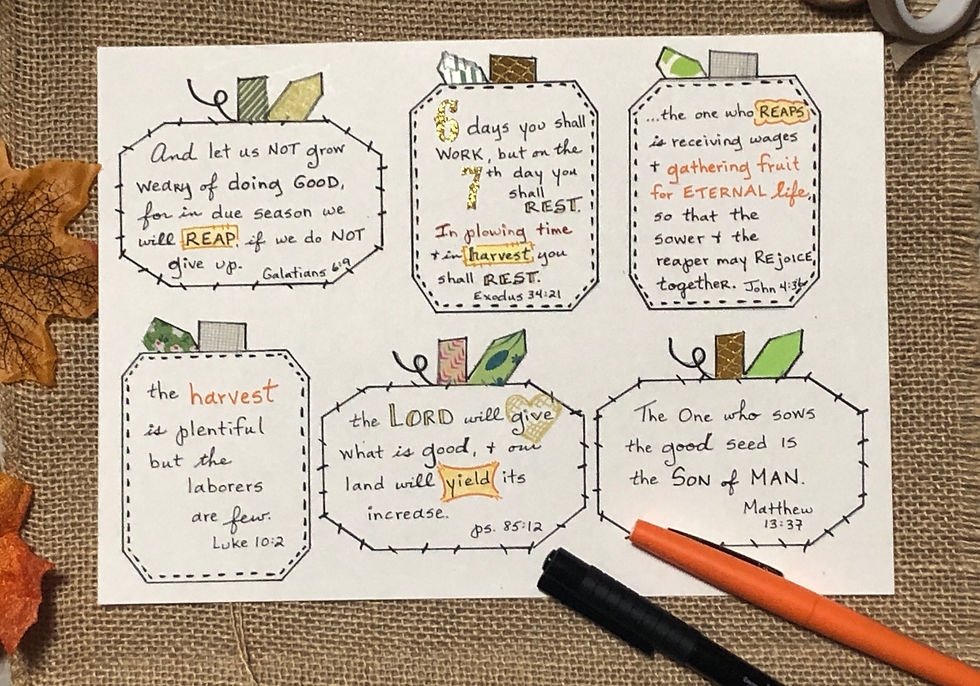 And let us NOT grow
weary of doing GOOD,
for in due season we
will REAP, if we do NOT
give up.
Galatians 6:9
6 days you shall
WORK, but on the
7th day you
shall
REST.
In plowing time
+ in harvest you
shall REST.
Exodus 34:21
...the one who REAPS
is receiving wages
+ gathering fruit
for ETERNAL life,
so that the
sower + the
reaper may REJOICE
together. John 4:36
the harvest
is plentiful
but the
laborers
are few.
Luke 10:2
the LORD will give
what is good, + our
land will yield its
increase.
ps. 85:12
The One who sows
the good seed IS
the SON of MAN.
Matthew
13:37